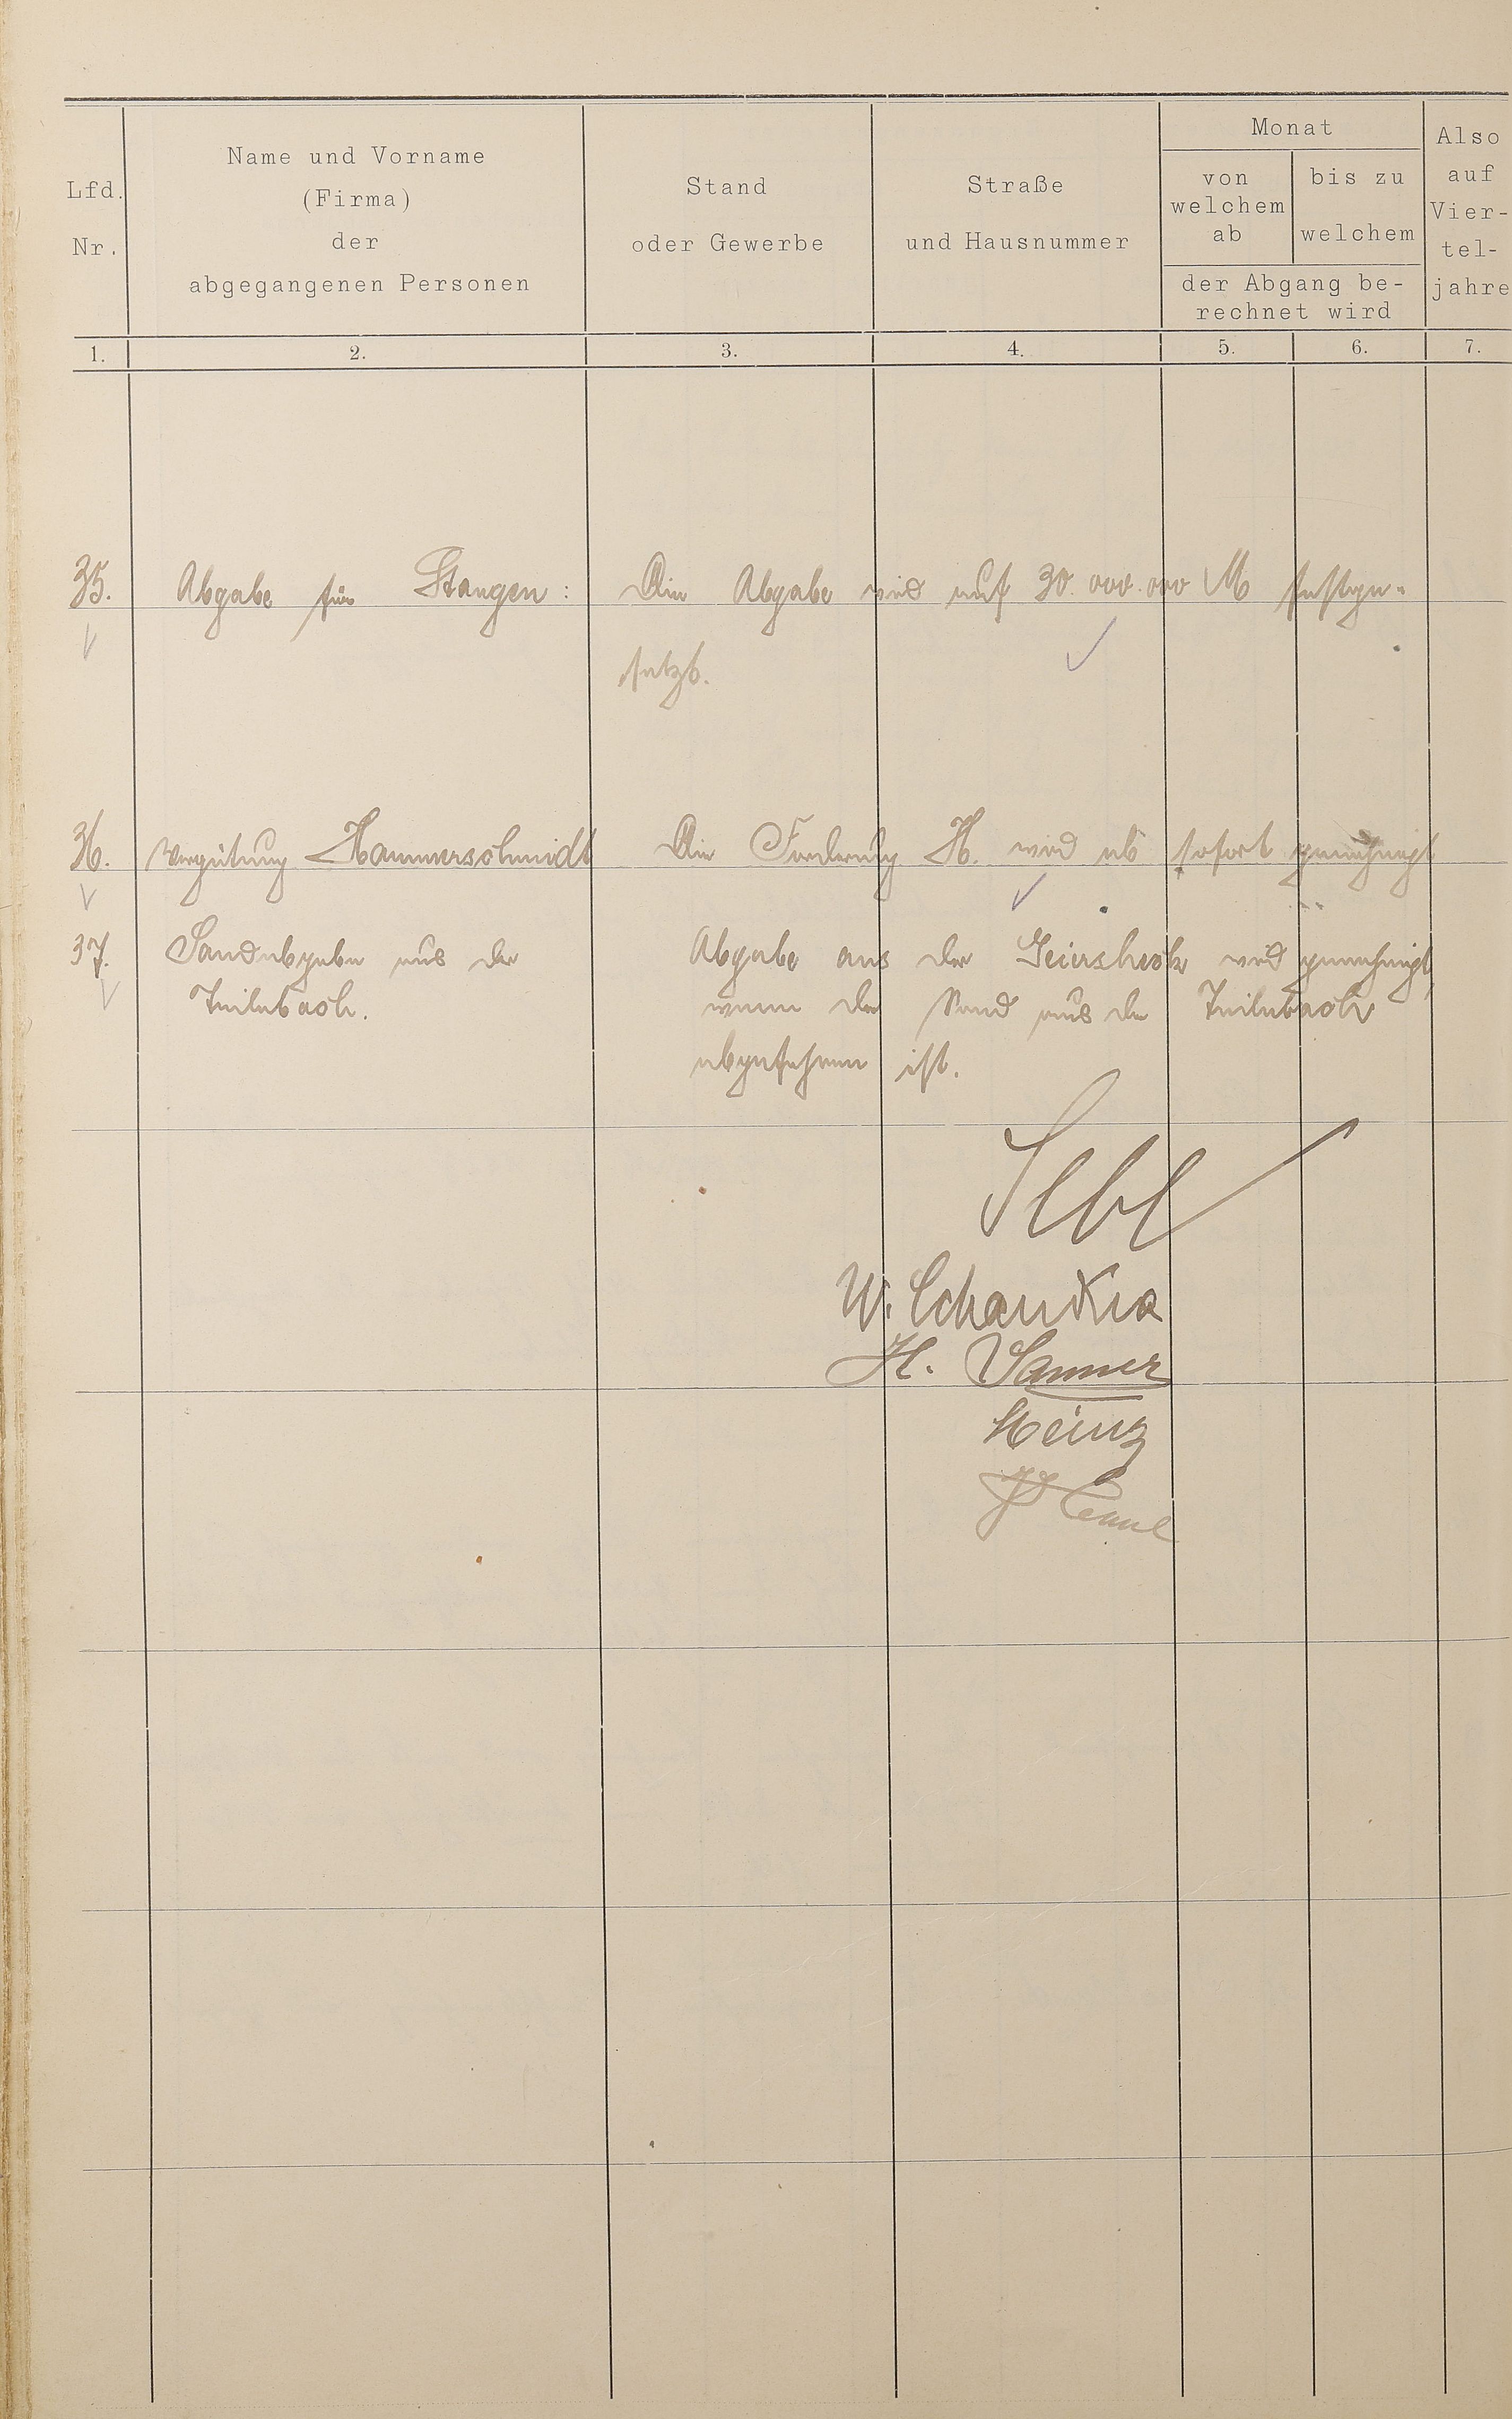 Lfd. Nr.
Name und Vorname
(Firma)
der
abgegangenen Personen
Stand
oder Gewerbe
Straße
und Hausnummer
Monat
von welchem ab
bis zu welchem
der Abgang be-
rechnet wird
Also auf Vier-
tel-
jahre
1. 2. 3. 4. 5. 6. 7.
35. Abgabe für Stangen: Die Abgabe wird auf 30.000.000 M festge-
setzt.
36. Vergütung Hammerschmidt Die Forderung H. wird ab sofort genehmigt
37. Sandabgabe aus der Abgabe aus der Geiersheck wird genehmigt,
Teilebach. wenn der Sand aus der Teilebach
abgefahren ist.
W.
H. Sanner
Heinz